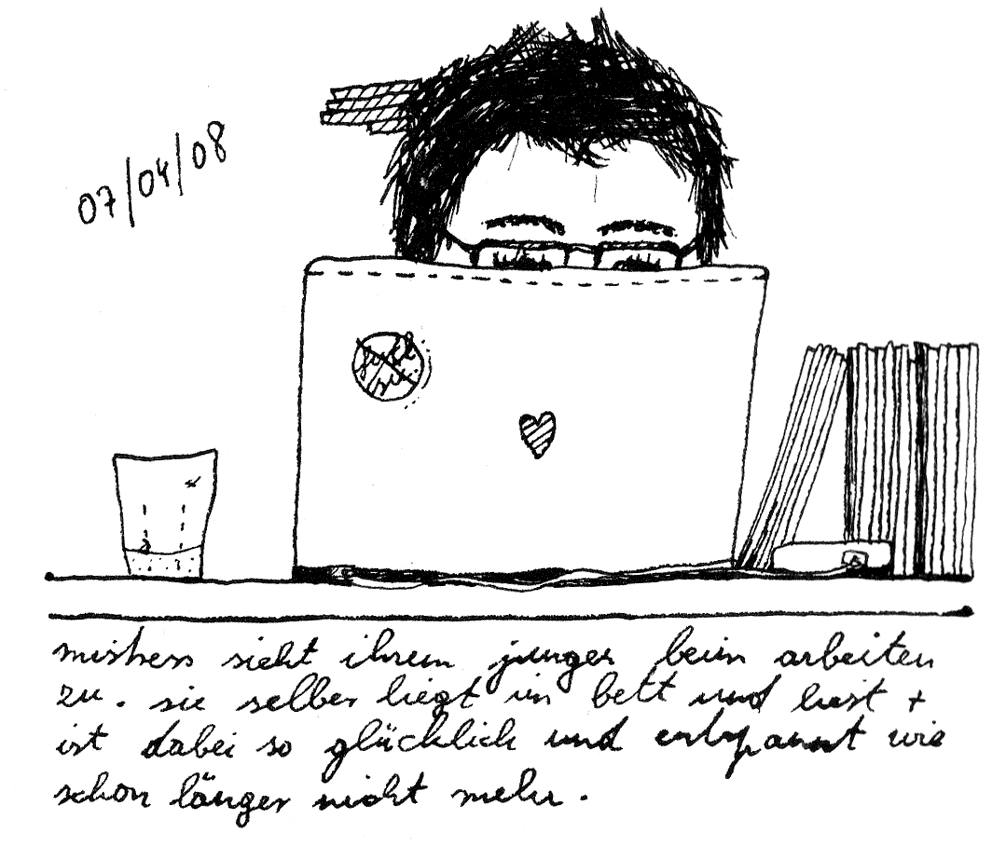 07/04/08
mistress sieht ihrem junger beim arbeiten
zu. sie selber liegt im bett und liest +
ist dabei so glücklich und entspannt wie
schon länger nicht mehr.